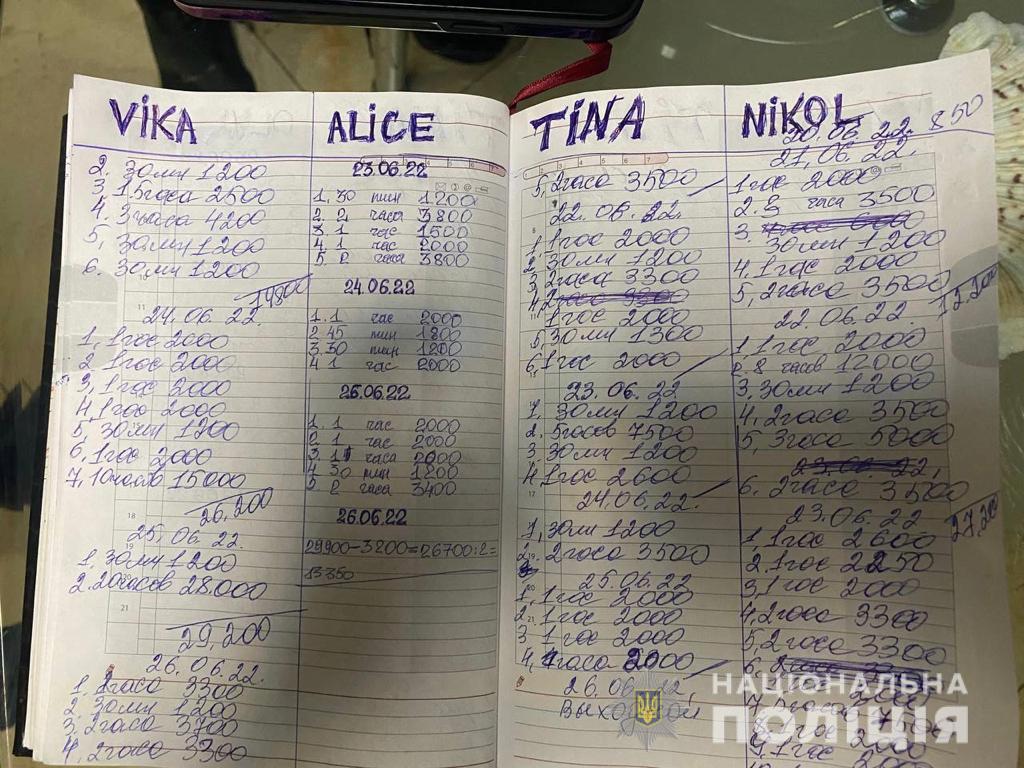 VIKA
2. 30мн 1200
3 1.5часа 2500
4. 3часа 4200
5, 30мн 1200
6. 30мн 1200
14800
24.06.22.
1, 1час 2000
2 1час 2000
3, 1час 2000
4, 1час 2000
5 30мн 1200
6, 1час 2000
7, 10часов 15000
26,200
25.06.22.
1, 30мн 1200
2. 20часов 28.000
29,200
26.06.22.
1. 2часа 3300
2. 30мн 1200
3. 2часа 3700
4, 2часа 3300
ALICE
23.06.22
1. 30 мин 1200
2. 2 часа 3800
3 1 час 1500
4. 1 час 2000
5. 2 часа 3800
24.06.22
1. 1 час 2000
2 45 мин 1800
3. 30 мин 1200
4 1 час 2000
25.06.22
1. 1 час 2000
2 1 час 2000
3 1 часа 2000
4 30 мин 1200
5 2 часа 3400
26.06.22
29900-3200=26700:2=
13350
TINA
5, 2часа 3500
22.06.22.
1, 1час 2000
2, 30мн 1200
3 2часа 3300
1час 2000
5, 30мн 1300
6, 1час 2000
23.06.22
1. 30мн 1200
2. 5часов 7500
3 30мн 1200
4 1час 2600
24.06.22.
1, 30мн 1200
2часа 3500
25.06.22
1, 1час 2000
2. 1час 2000
3 1час 2000
4, часа 2000
26.06.22,
Выходной
NIKOL
20.06.22. 850
21.06.22.
1час 2000
2. 2 часа 3500
3.
30мин 1200
4, 1час 2000
5, 2часа 3500
22.06.22.
1, 1час 2000
2. 8 часов 12000
3. 30мн 1200
4, 2часа 3500
5, 3часа 5000
23.06.22,
6. 2часа 3500
27,200
23.06.22
1, 1час 2600
2. 1час 2250
3, 1час 2000
4, 2часа 3300
5, 2часа 3300
9, 1час 2000
НАЦІОНАЛЬНА
ПОЛІЦІЯ